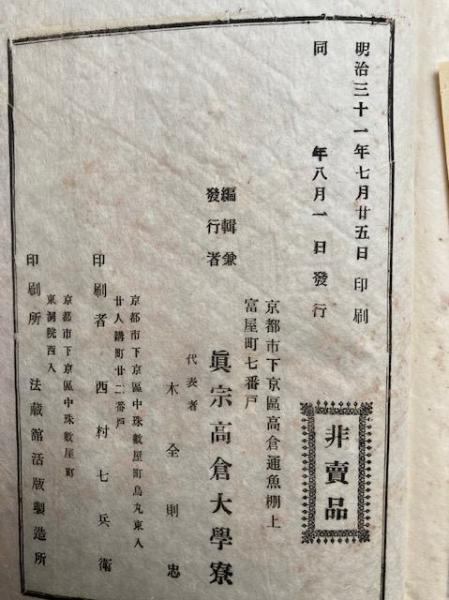 明治三十一年七月廿五日印刷
同年八月一日發行
非賣品
京都市下京區高倉通魚棚上
富屋町七番戸
編輯兼
發行者
眞宗高倉大學寮
代表者
木全則忠
京都市下京區中珠數屋町烏丸東入
廿人講町廿二番戸
印刷者 西村七兵衛
京都市下京區中珠數屋町
東洞院西入
印刷所 法藏館活版製造所